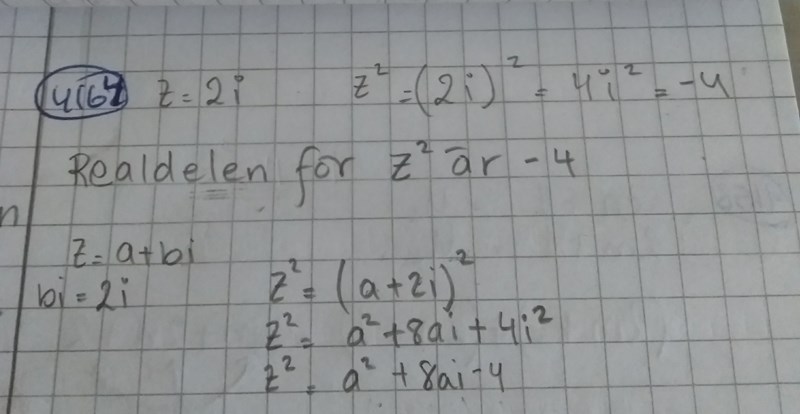 4164 z = 2i z² = (2i)² = 4i² = -4
Realdelen for z² är -4
n
z = a+bi
bi = 2i z² = (a+2i)²
z² = a² + 8ai + 4i²
z² = a² + 8ai - 4